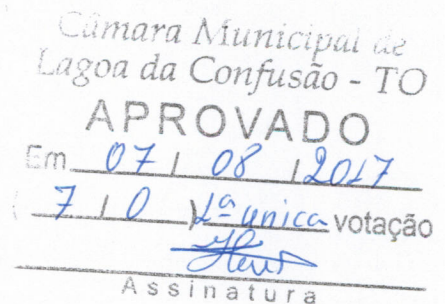 Câmara Municipal de
Lagoa da Confusão - TO
APROVADO
Em 07 / 08 / 2017
( 7 / 0 ) 1ª unica votação
Assinatura